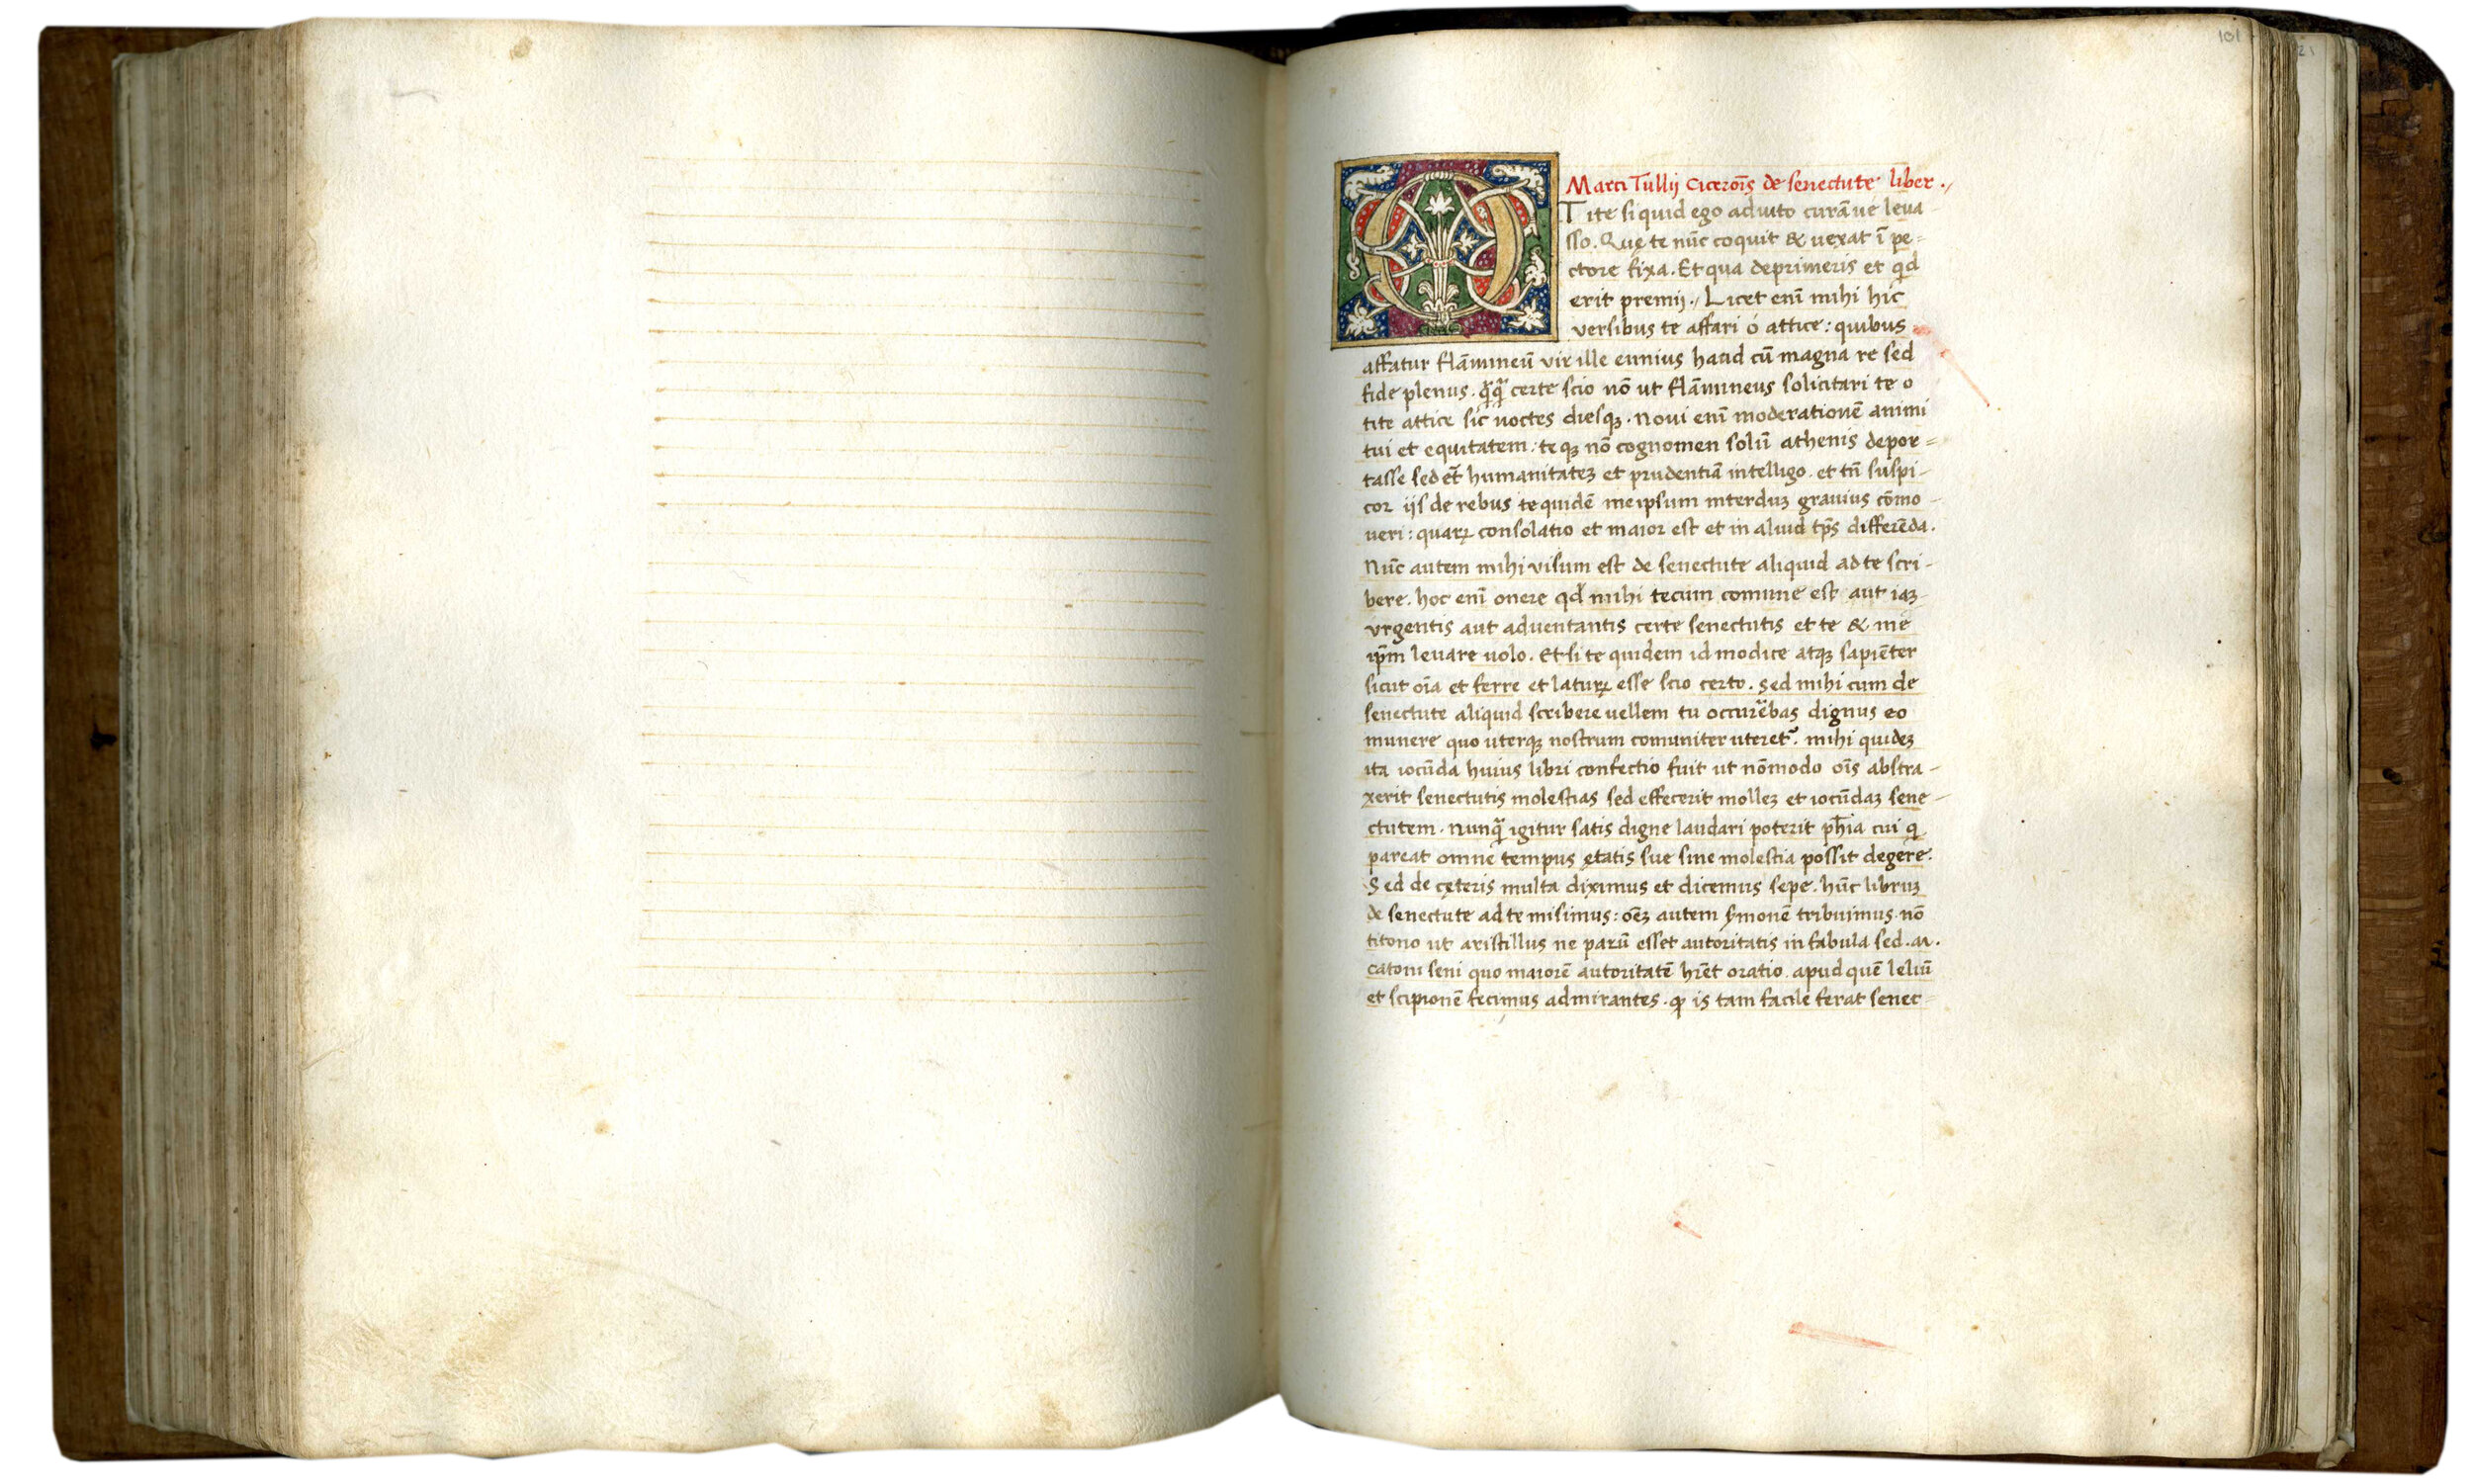 101
21
Marci Tullij Cicerōis de senectute liber ./
O Tite si quid ego adiuto curāue leua
sso. Que te nūc coquit & uexat ī pe=
ctore fixa. Et qua deprimeris et qd
erit premij ./ Licet enī mihi hic
versibus te affari ó attice: quibus
affatur flāmineū vir ille ennius haud cū magna re sed
fide plenus. certe scio nō ut flāmineus solicitari te o
tite attice sic noctes diesqꝫ. Noui enī moderationē animi
tui et equitatem: teqꝫ nō cognomen solū athenis depor=
tasse sed et̄ humanitateꝫ et prudentiā intelligo. et tn̄ suspi-
cor ijs de rebus te quidē meipsum interduꝫ grauius cōmo-
ueri: quaꝝ consolatio et maior est et in aliud tp̄s differēda.
Nūc autem mihi visum est de senectute aliquid ad te scri-
bere. hoc enī onere qd̄ mihi tecum comune est aut iaꝫ
vrgentis aut aduentantis certe senectutis et te & me
ip̄m leuare uolo. Etsi te quidem id modice atqꝫ sapiēter
sicut oīa et ferre et latuꝝ esse scio certo. Sed mihi cum de
senectute aliquid scribere uellem tu occurēbas dignus eo
munere quo uterqꝫ nostrum comuniter uteret᷑. mihi quideꝫ
ita iocūda huius libri confectio fuit ut nōmodo oīs abstra-
xerit senectutis molestias sed effecerit molleꝫ et iocūdaꝫ sene-
ctutem. Nunq̄ igitur satis digne laudari poterit ph̄ia cui q
pareat omne tempus ętatis sue sine molestia possit degere.
Sed de cęteris multa diximus et dicemus sepe. hūc libruꝫ
de senectute ad te misimus: oēꝫ autem s̄monē tribuimus nō
titono ut aristillus ne parū esset autoritatis in fabula sed .M.
catoni seni quo maiorē autoritatē hr̄et oratio. apud quē leliū
et scipionē fecimus admirantes. ꝙ is tam facile ferat senec=